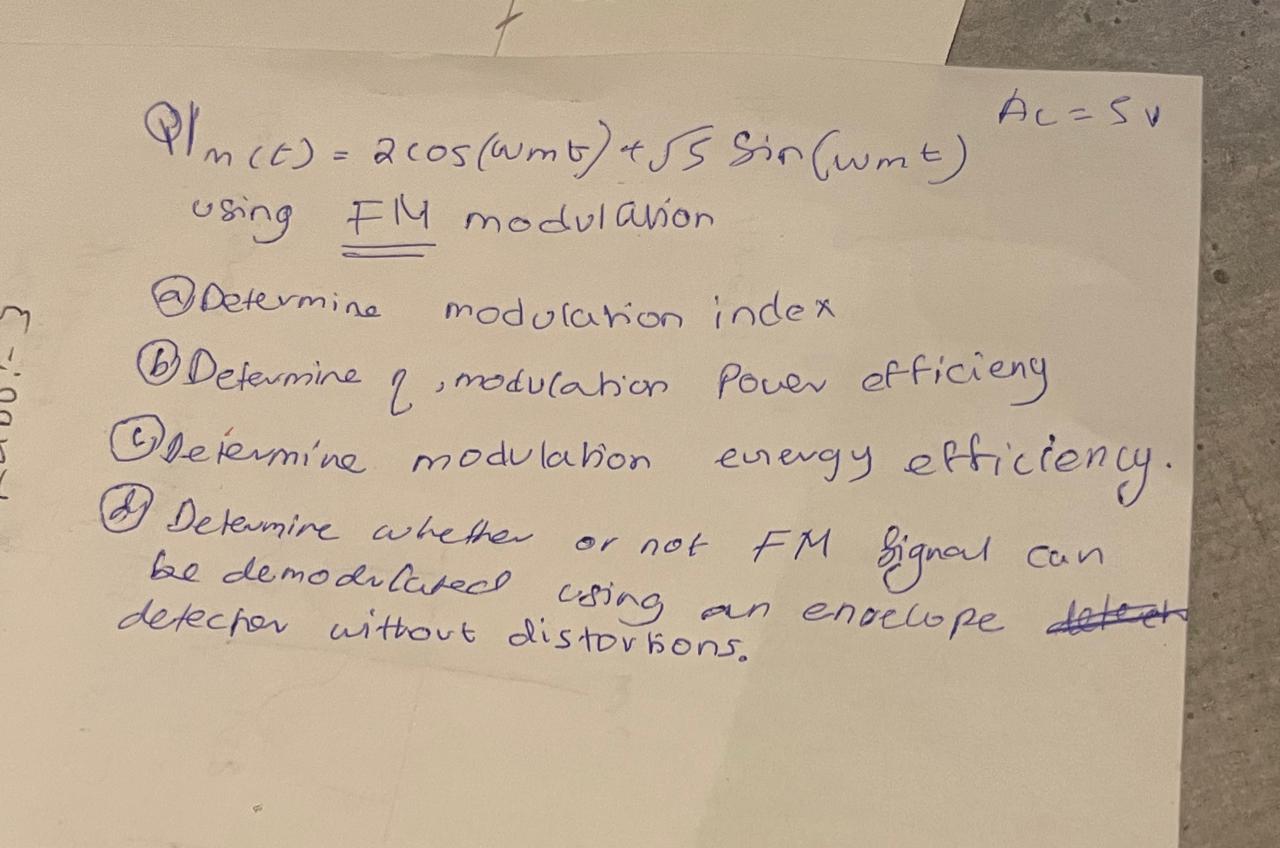 Q1 Ac = 5 v
m(t) = 2cos(wmt) + √5 Sin(wmt)
using FM modulation
(a) Determine modulation index
(b) Determine η, modulation Power efficieny
(c) Determine modulation energy efficiency.
(d) Determine whether or not FM Signal can
be demodulated using an envelope
detector without distortions.